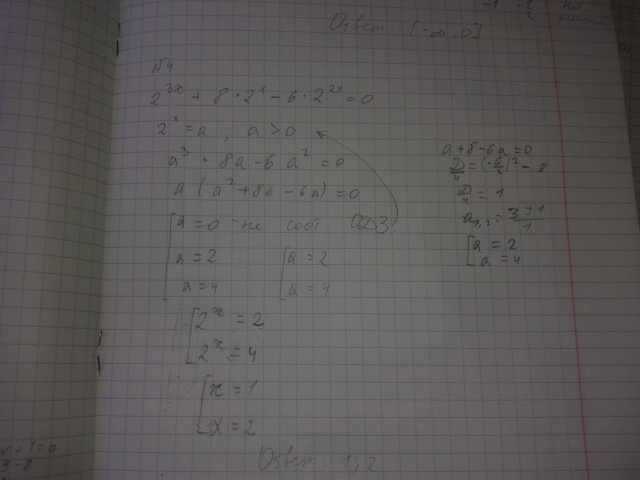 Ответ [-∞; 0]
№4
2^{3x} + 8 · 2^x - 6 · 2^{2x} = 0
2^x = a, a > 0
a³ · 8a - 6 a² = 0
a (a² + 8a - 6a) = 0
a = 0 - не соот ОДЗ
a = 2
a = 4
a = 2
a = 4
2^x = 2
2^x = 4
x = 1
x = 2
Ответ: 1; 2
a + 8 - 6a = 0
D/4 = (-6/2)² - 8
D/4 = 1
a_{1,2} = (3 ± 1)/1
a = 2
a = 4